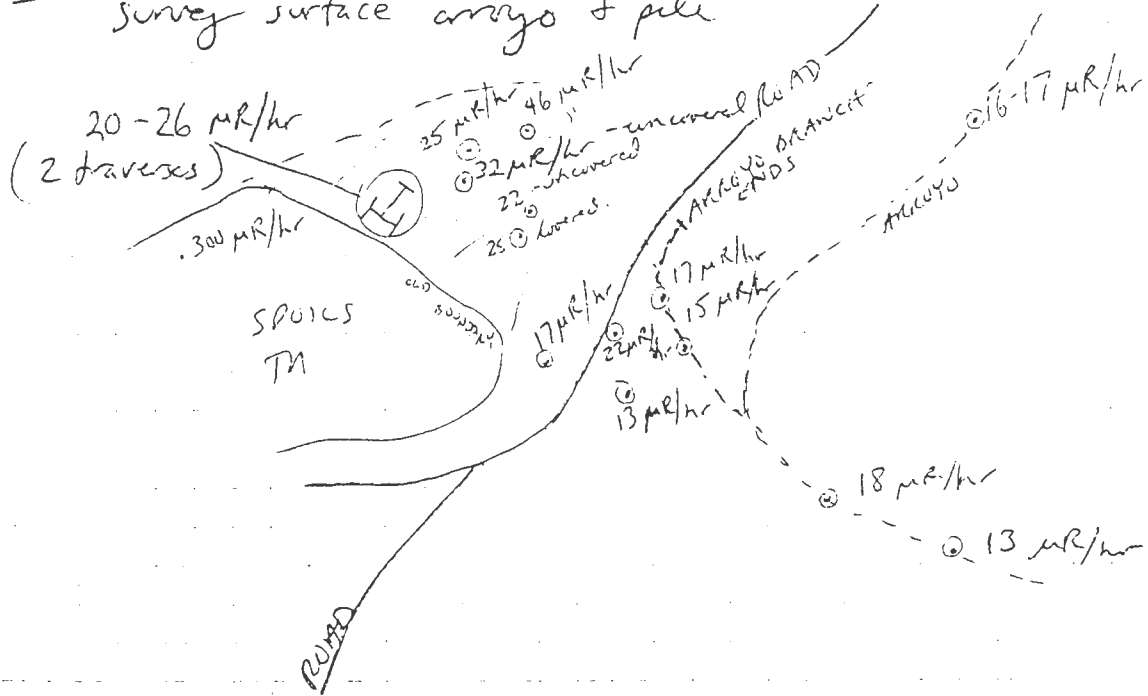 survey surface arroyo & pile
20-26 µR/hr
(2 traverses)
25 µR/hr
46 µR/hr
"
32 µR/hr - uncovered
22 - uncovered
25 covered.
ROAD
ARROYO BRANCH
ENDS
16-17 µR/hr
ARROYO
.300 µR/hr
OLD
BOUNDARY
SPOILS
17 µR/hr
17 µR/hr
15 µR/hr
22 µR/hr
13 µR/hr
18 µR/hr
13 µR/hr
ROAD